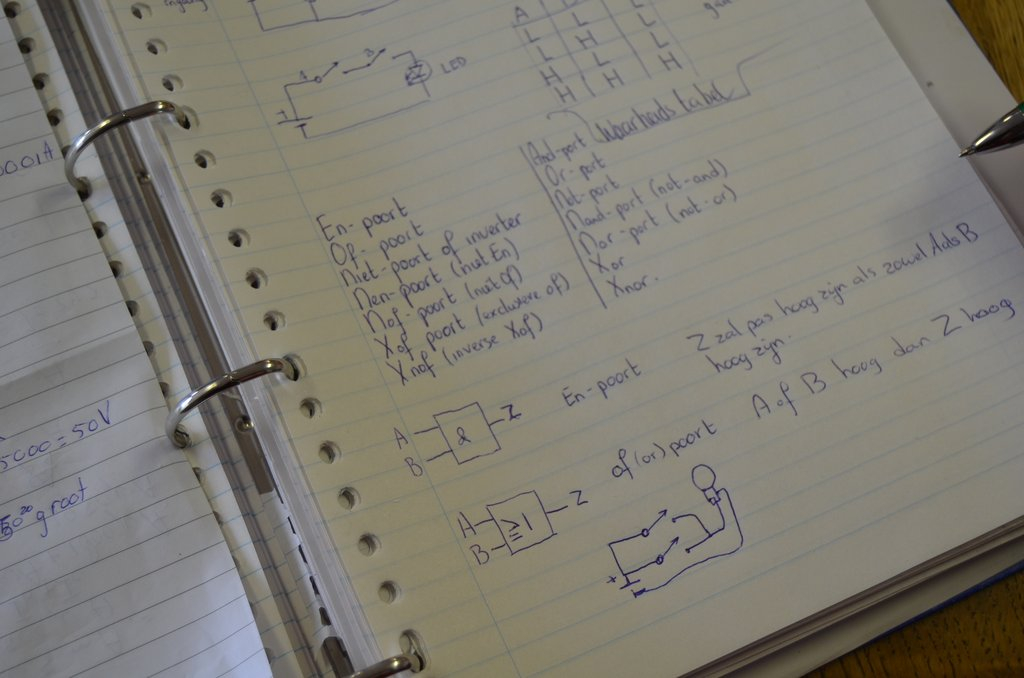 ingang
A
L L L
L H L
H L L
H H H
A B LED
+
Waarheids tabel
En-poort
Of-poort
Niet-poort of inverter
Nen-poort (niet En)
Nof-poort (niet Of)
Xof poort (exclusieve of)
Xnof (inverse Xof)
And-port
Or-port
Not-port
Nand-port (not-and)
Nor-port (not-or)
Xor
Xnor.
A B & Z En-poort Z zal pas hoog zijn als zowel A als B
hoog zijn.
A B ≥1 Z of (or) poort A of B hoog dan Z hoog
+
0001A
5000=50V
groot